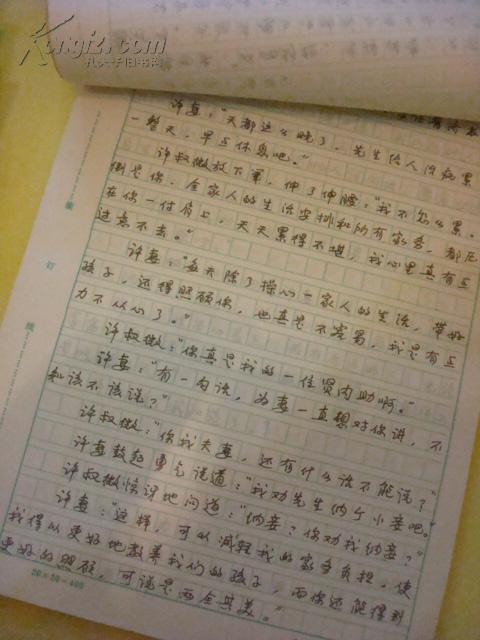 Kongfz.com
孔夫子旧书网
许妻："天都这么晚了，先生给人治病累
一整天，早点休息吧。"
许叔微放下笔，伸了伸腰："我不怎么累。
倒是你，全家人的生活安排和所有家务，都压
在你一付肩上，天天累得不堪，我心里真有点
过意不去。"
许妻："每天除了操心一家人的生活，带好
孩子，还得照顾你，也真是不容易，我是有点
力不从心了。"
许叔微："你真是我的一位贤内助啊。"
许妻："有一句话，为妻一直想对你讲，不
知该不该说？"
许叔微："你我夫妻，还有什么话不能说？"
许妻鼓起勇气说道："我劝先生纳个小妾吧。"
许叔微惊讶地问道："纳妾？你劝我纳妾？"
许妻："这样，可以减轻我的家务负担，使
我得以更好地教养我们的孩子，而你还能得到
更好的照顾，可说是两全其美。"
20×20=400
装
订
线